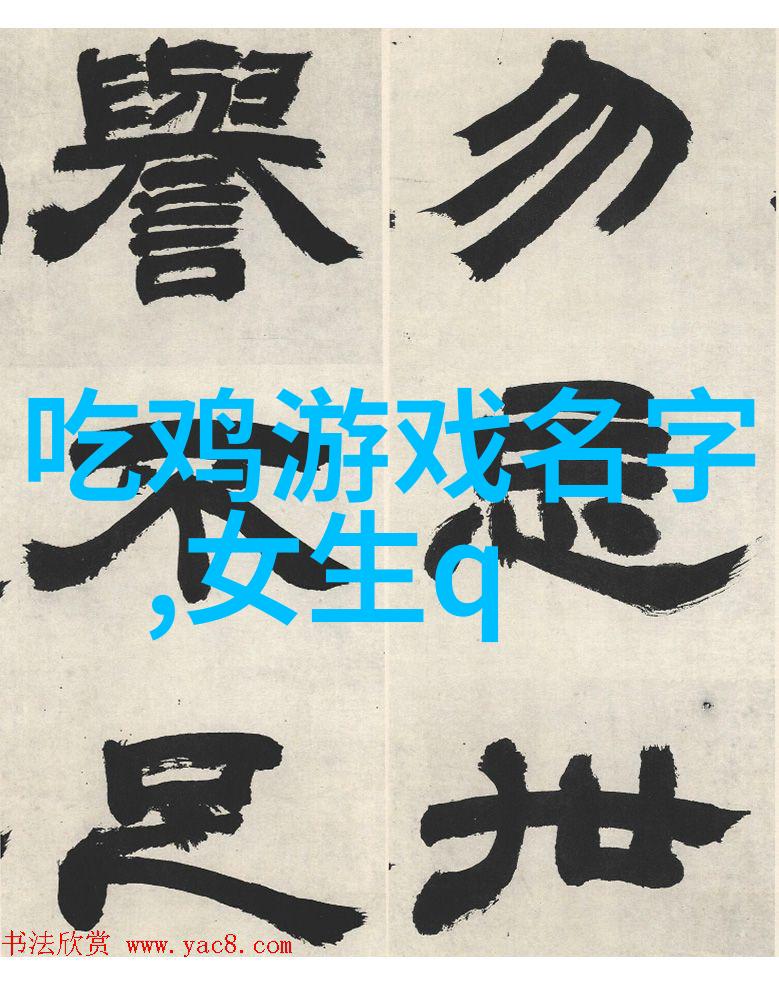 勿忘世
譽不足
吃鸡游戏名字
,女生q
书法欣赏 www.yac8.com